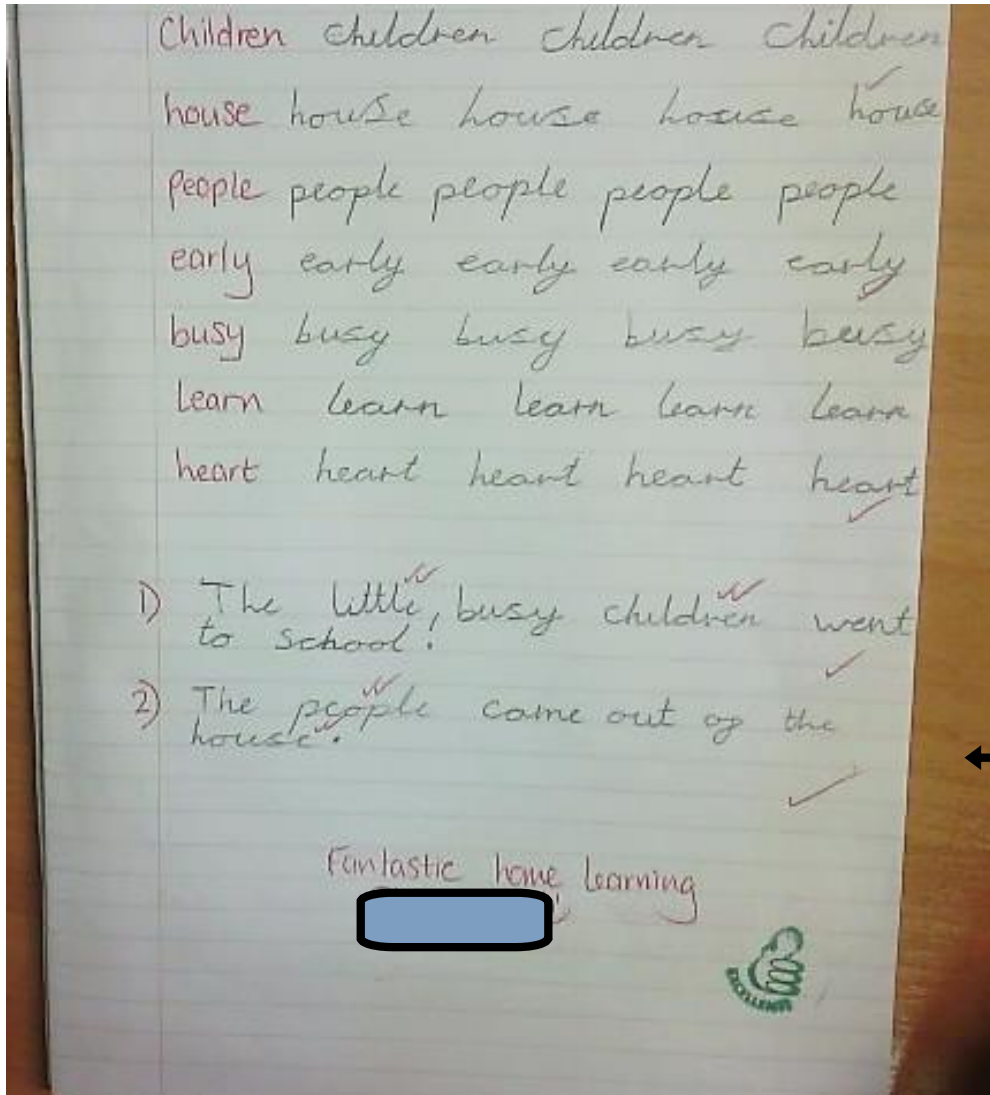 Children children children children
house house house house house
People people people people people
early early early early early
busy busy busy busy busy
learn learn learn learn learn
heart heart heart heart heart
1) The little, busy children went
to school.
2) The people came out of the
house.
Fantastic home learning
EXCELLENT